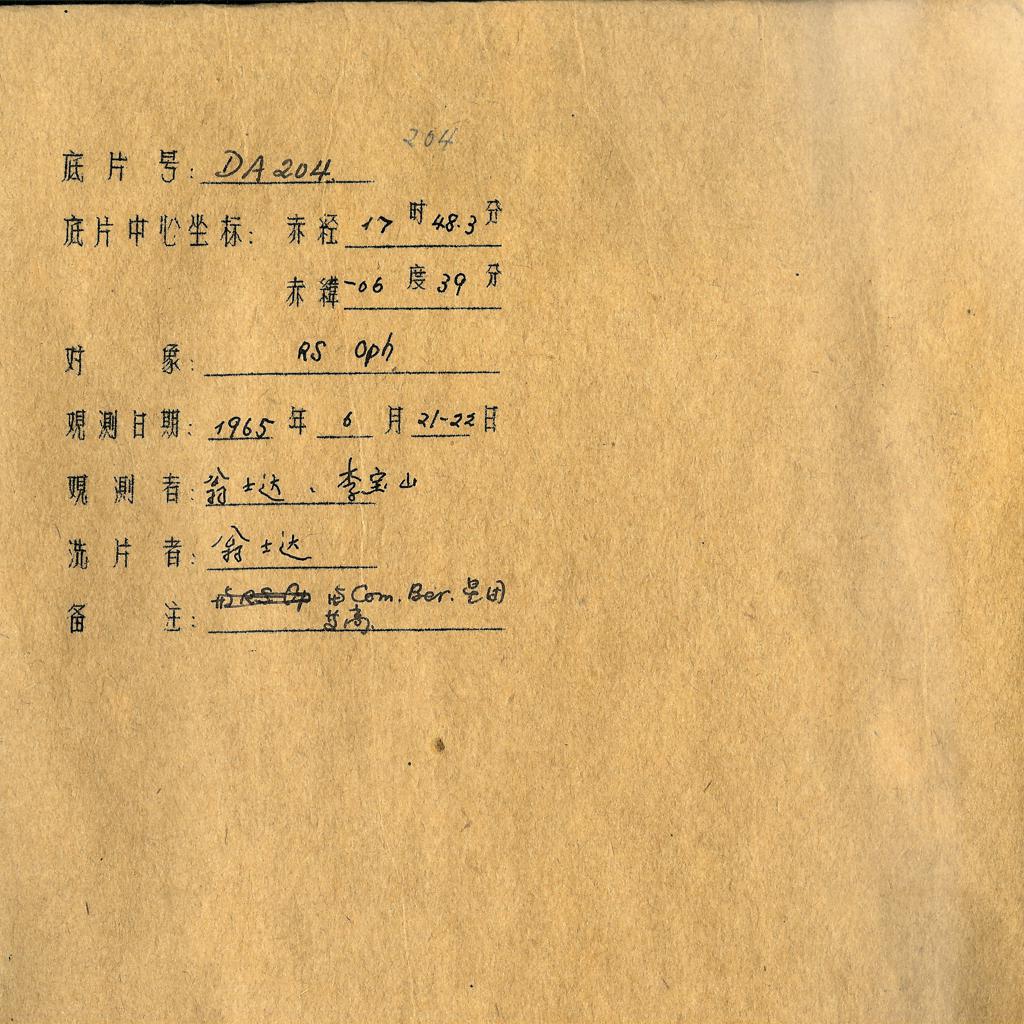 204
底片号: DA204.
底片中心坐标: 赤经 17 时 48.3 分
赤緯 -06 度 39 分
对象: RS Oph.
观测日期: 1965 年 6 月 21-22 日
观测者: 翁士达、李宝山
洗片者: 翁士达
备注: 与Com. Ber. 星团
等高.